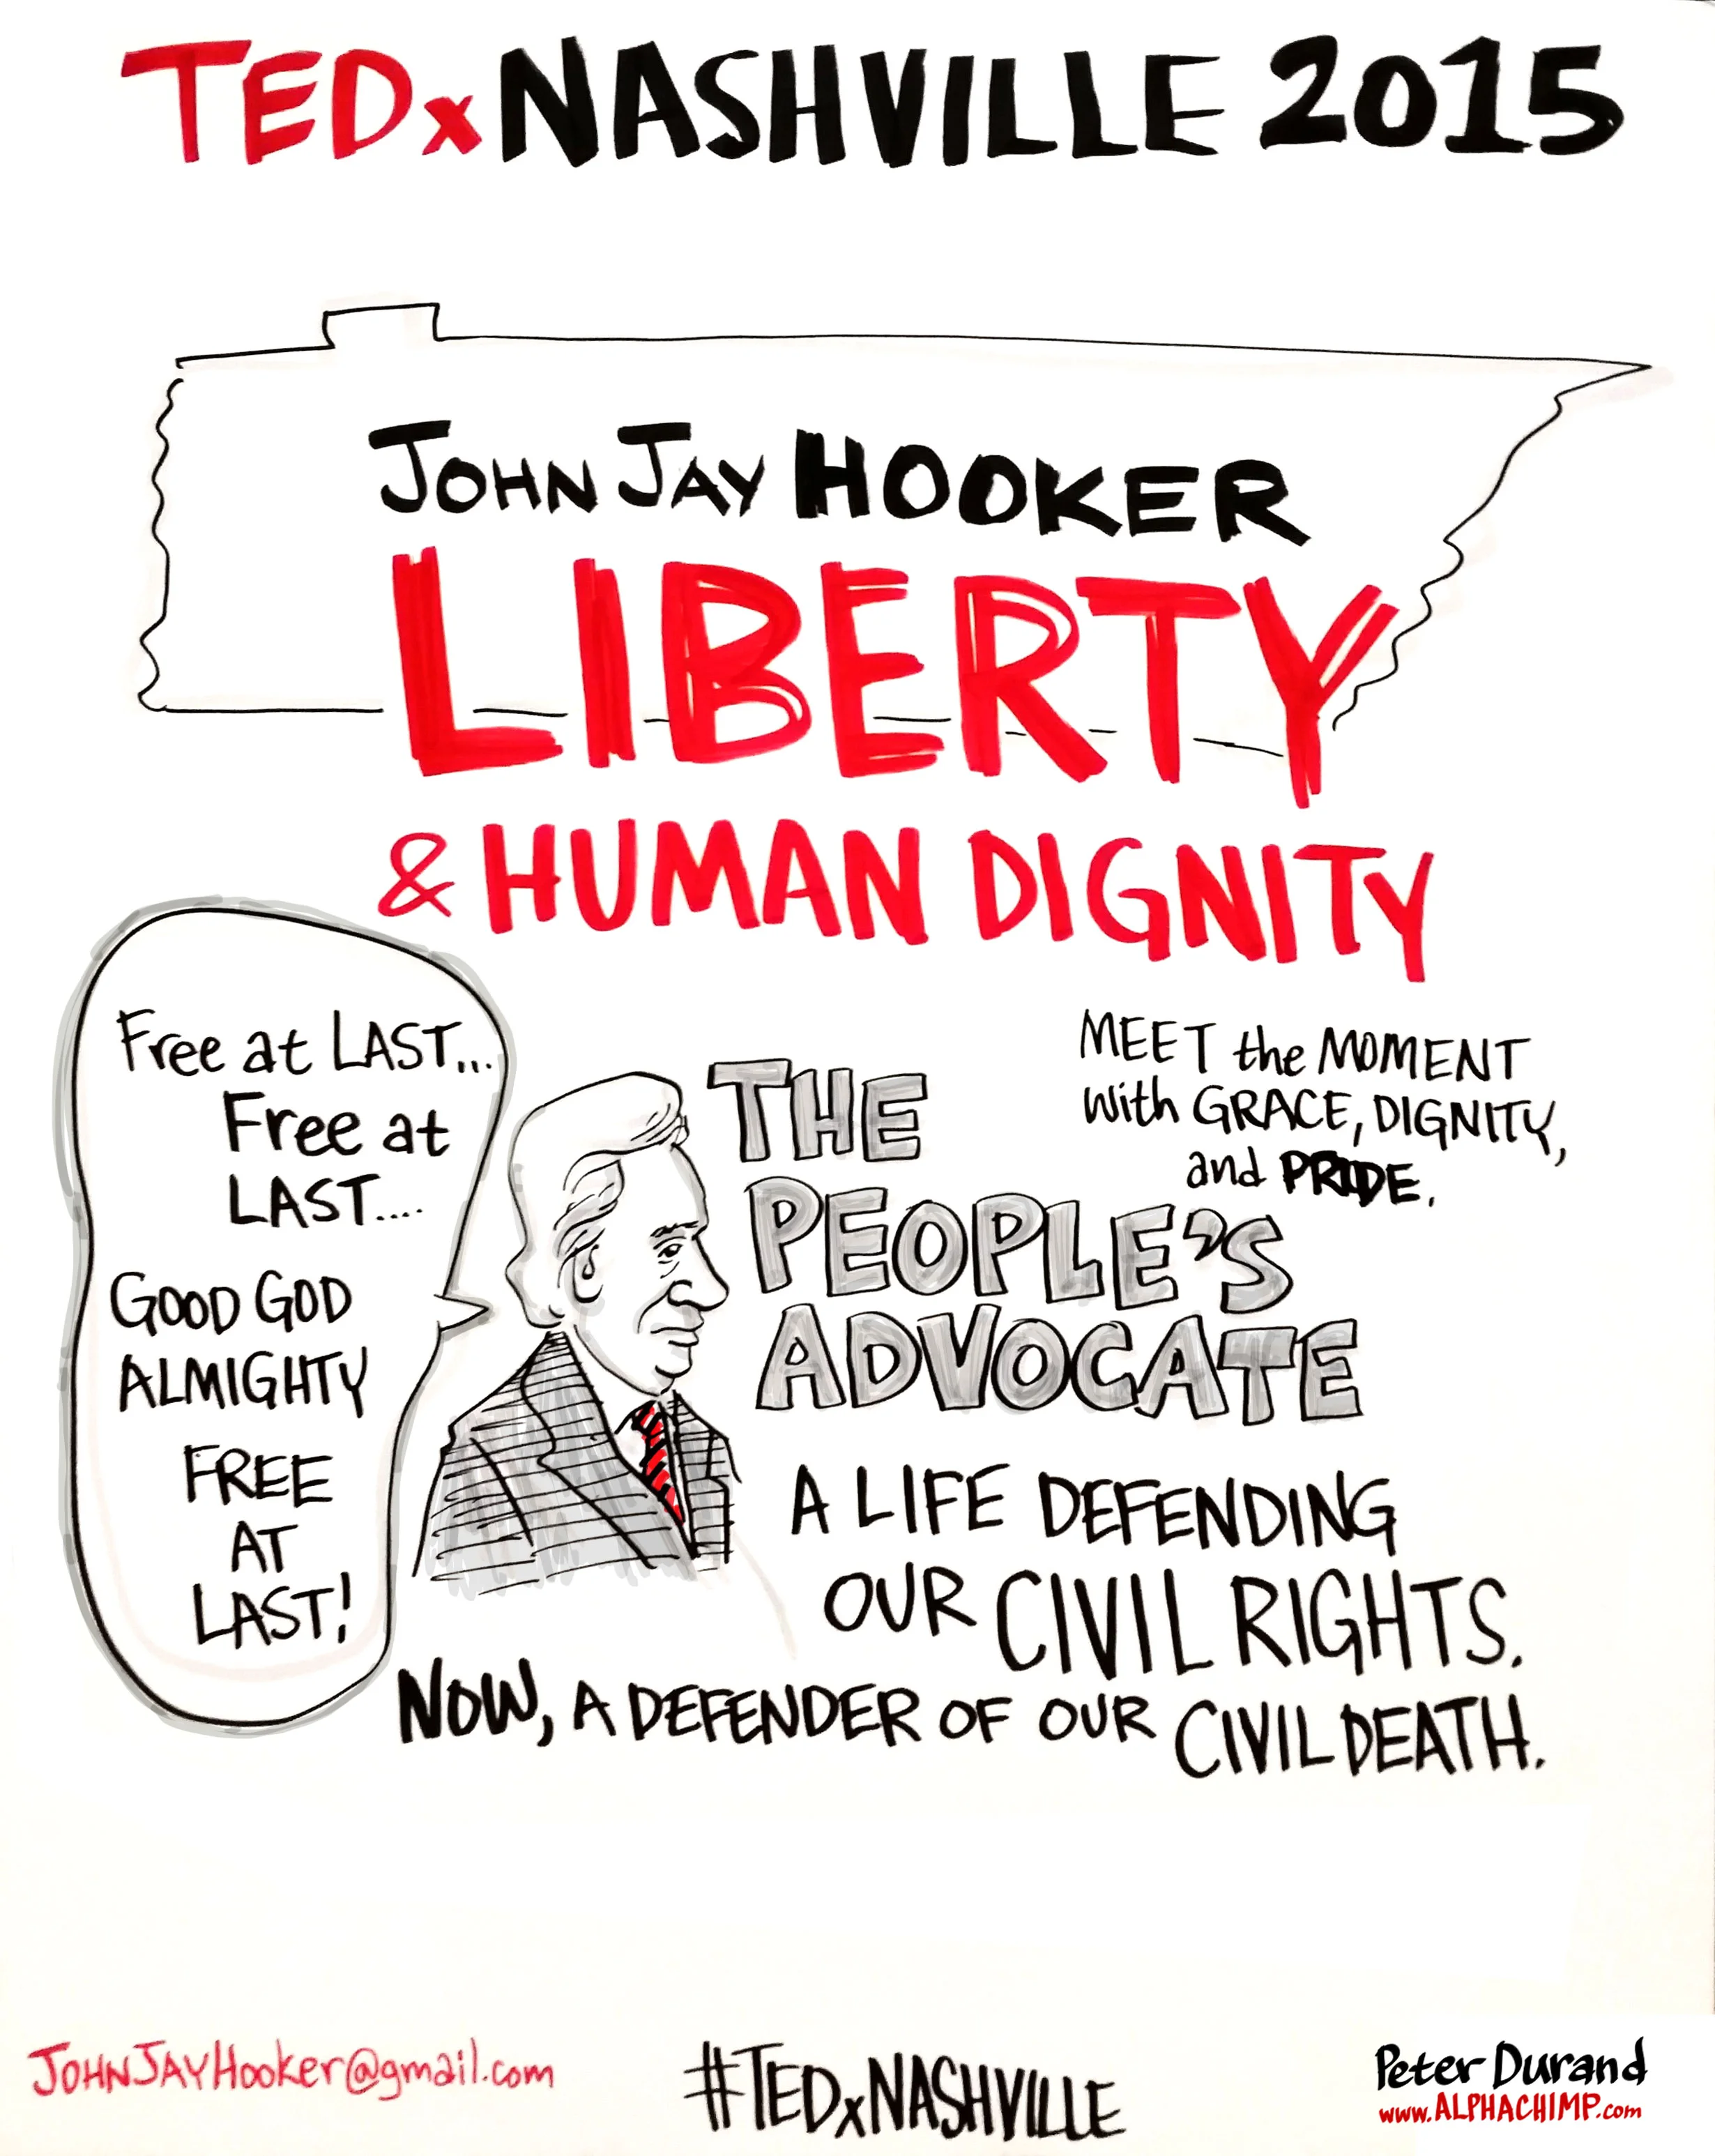 TEDxNASHVILLE 2015
JOHN JAY HOOKER
LIBERTY
& HUMAN DIGNITY
Free at LAST...
Free at
LAST....
GOOD GOD
ALMIGHTY
FREE
AT
LAST!
MEET the MOMENT
with GRACE, DIGNITY,
and PRIDE.
THE
PEOPLE'S
ADVOCATE
A LIFE DEFENDING
OUR CIVIL RIGHTS.
NOW, A DEFENDER OF OUR CIVIL DEATH.
JOHNJAYHooker@gmail.com
#TEDxNASHVILLE
Peter Durand
www.ALPHACHIMP.com